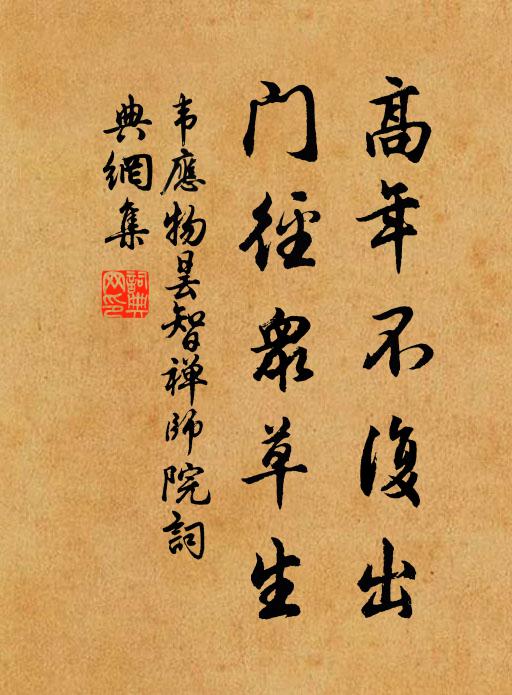 高年不復出
門徑衆草生
韦應物昙智禅師院詞
典網集
詞典网印